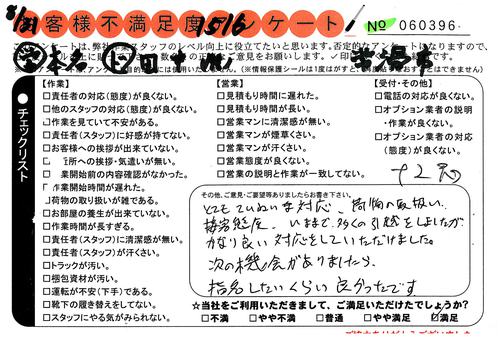 8/31 お客様不満足度1516アンケート! No 060396
【作業】
□責任者の対応(態度)が良くない。
□他のスタッフの対応(態度)が良くない。
□作業を見ていて不安がある。
□責任者(スタッフ)に好感が持てない。
□お客様への挨拶が出来ていない。
所への挨拶・気遣いが無い。
業開始前の内容確認がなかった。
作業開始時間が遅れた。
□荷物の取り扱いが雑である。
□お部屋の養生が出来ていない。
□作業時間が長すぎる。
□責任者(スタッフ)に清潔感が無い。
□責任者(スタッフ)が汗くさい。
□トラックが汚い。
□梱包資材が汚い。
□運転が不安(下手)である。
□靴下の履き替えをしてない。
□スタッフにやる気がみられない。
【営業】
□見積もり時間に遅れた。
□見積もり時間が長い。
□営業マンに清潔感が無い。
□営業マンが煙草くさい。
□営業マンが汗くさい。
□営業態度が良くない。
□営業の説明と作業が一致してない。
【受付・その他】
□電話の対応が良くない。
□オプション業者の説明
・作業が良くない。
□オプション業者の対応
(態度)が良くない。
●チェックリスト
その他、ご意見・ご要望等ありましたらお書き下さい。
とてもていねいな対応、荷物の取扱い、
接客態度、いままで多くの引越をしましたが
かなり良い対応をしていただけました。
次の機会がありましたら、
指名したいくらい良かったです
☆当社をご利用いただきまして、ご満足いただけたでしょうか?
□不満 □やや不満 □普通 □やや満足 ☑満足